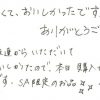 くて、おいしかったです
ありがとうご
友達からいただいて
おいしかたので、本日購入
す。SA限定のお品